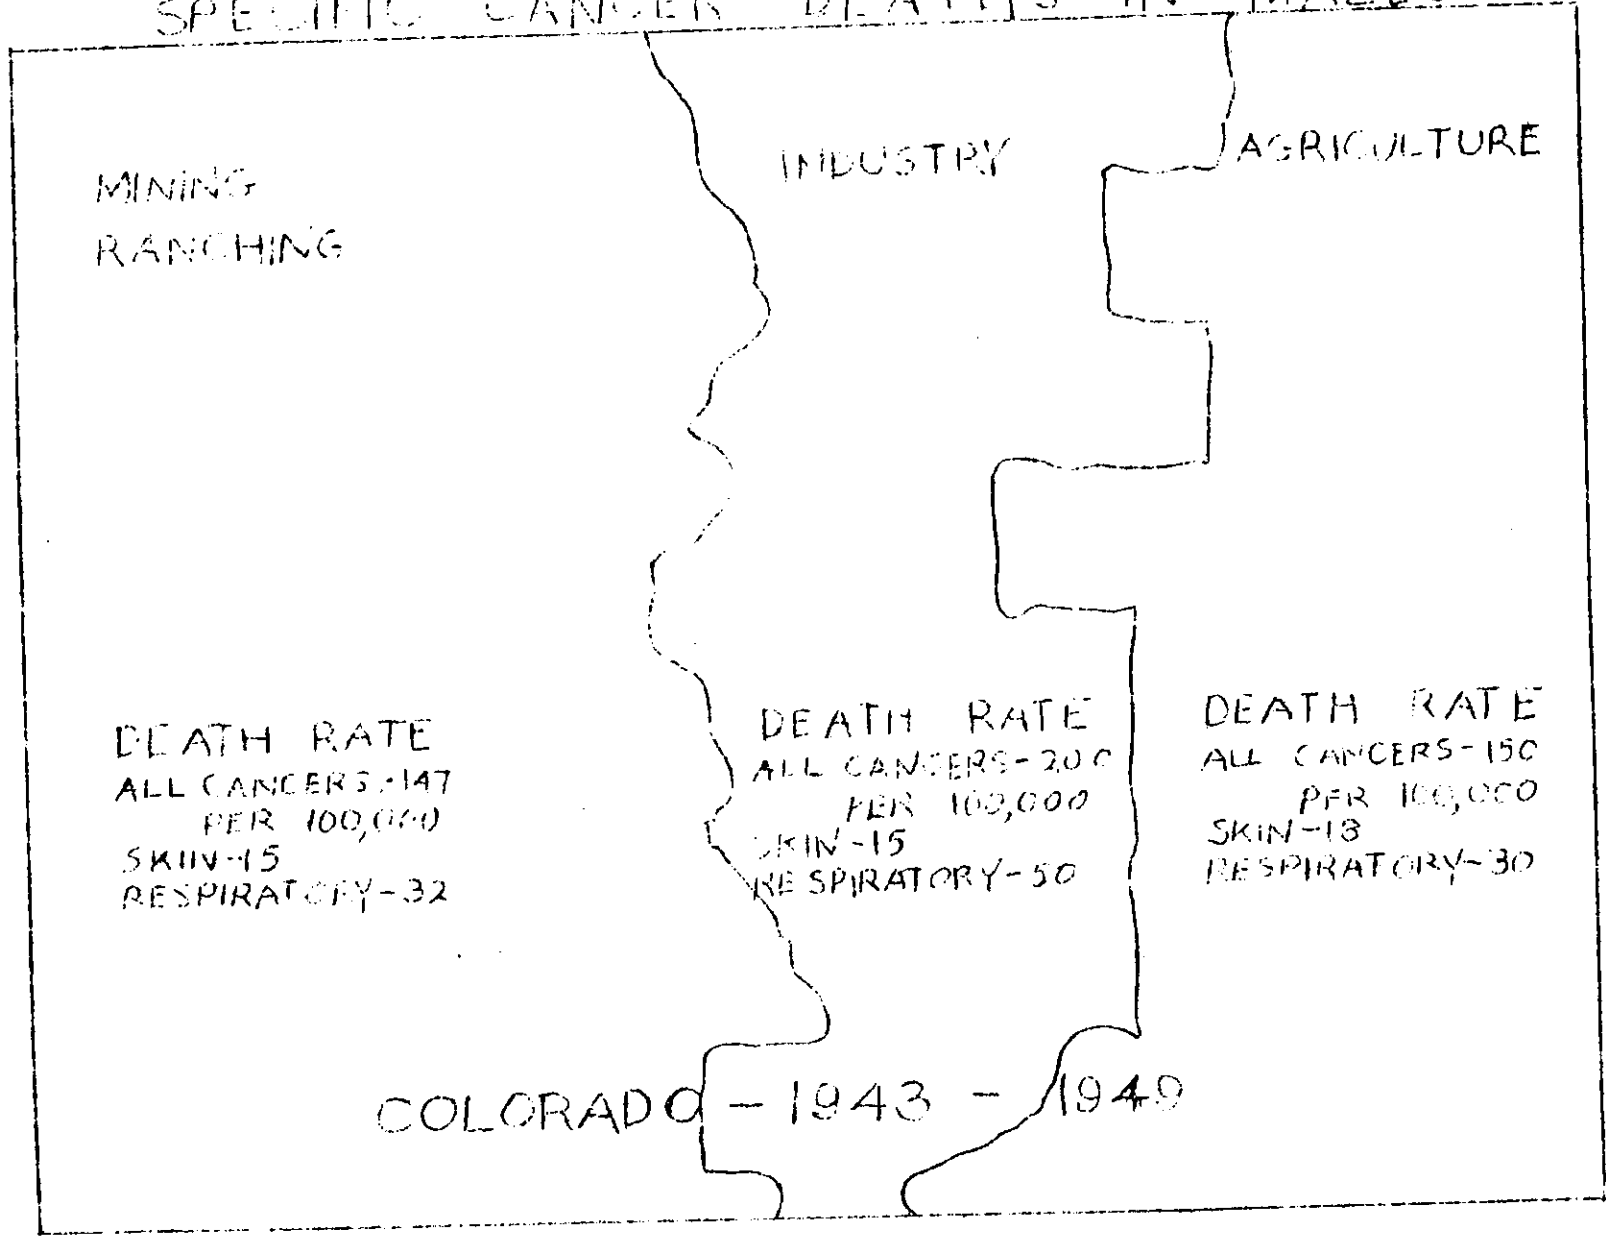 SPECIFIC CANCER DEATHS IN MALES
MINING
RANCHING
INDUSTRY
AGRICULTURE
DEATH RATE
ALL CANCERS-147
PER 100,000
SKIN-15
RESPIRATORY-32
DEATH RATE
ALL CANCERS-200
PER 100,000
SKIN-15
RESPIRATORY-50
DEATH RATE
ALL CANCERS-150
PER 100,000
SKIN-18
RESPIRATORY-30
COLORADO - 1943 - 1949